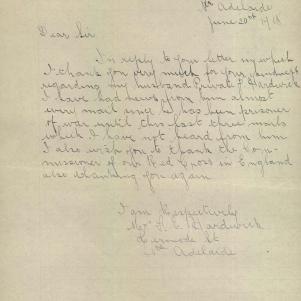 Nth Adelaide
June 20th 1918
Dear Sir
In reply to your letter in which
I thank you very much for your kindness
regarding my husband Private F Hardwick
I have had news from him almost
every mail since he has been prisoner
of war until this last three mails
which I have not heard from him
I also wish you to thank the Com-
missioner of our Red Cross in England
also thanking you again
I am Respectively
Mrs F. E. Hardwick
Kermode St
Nth Adelaide